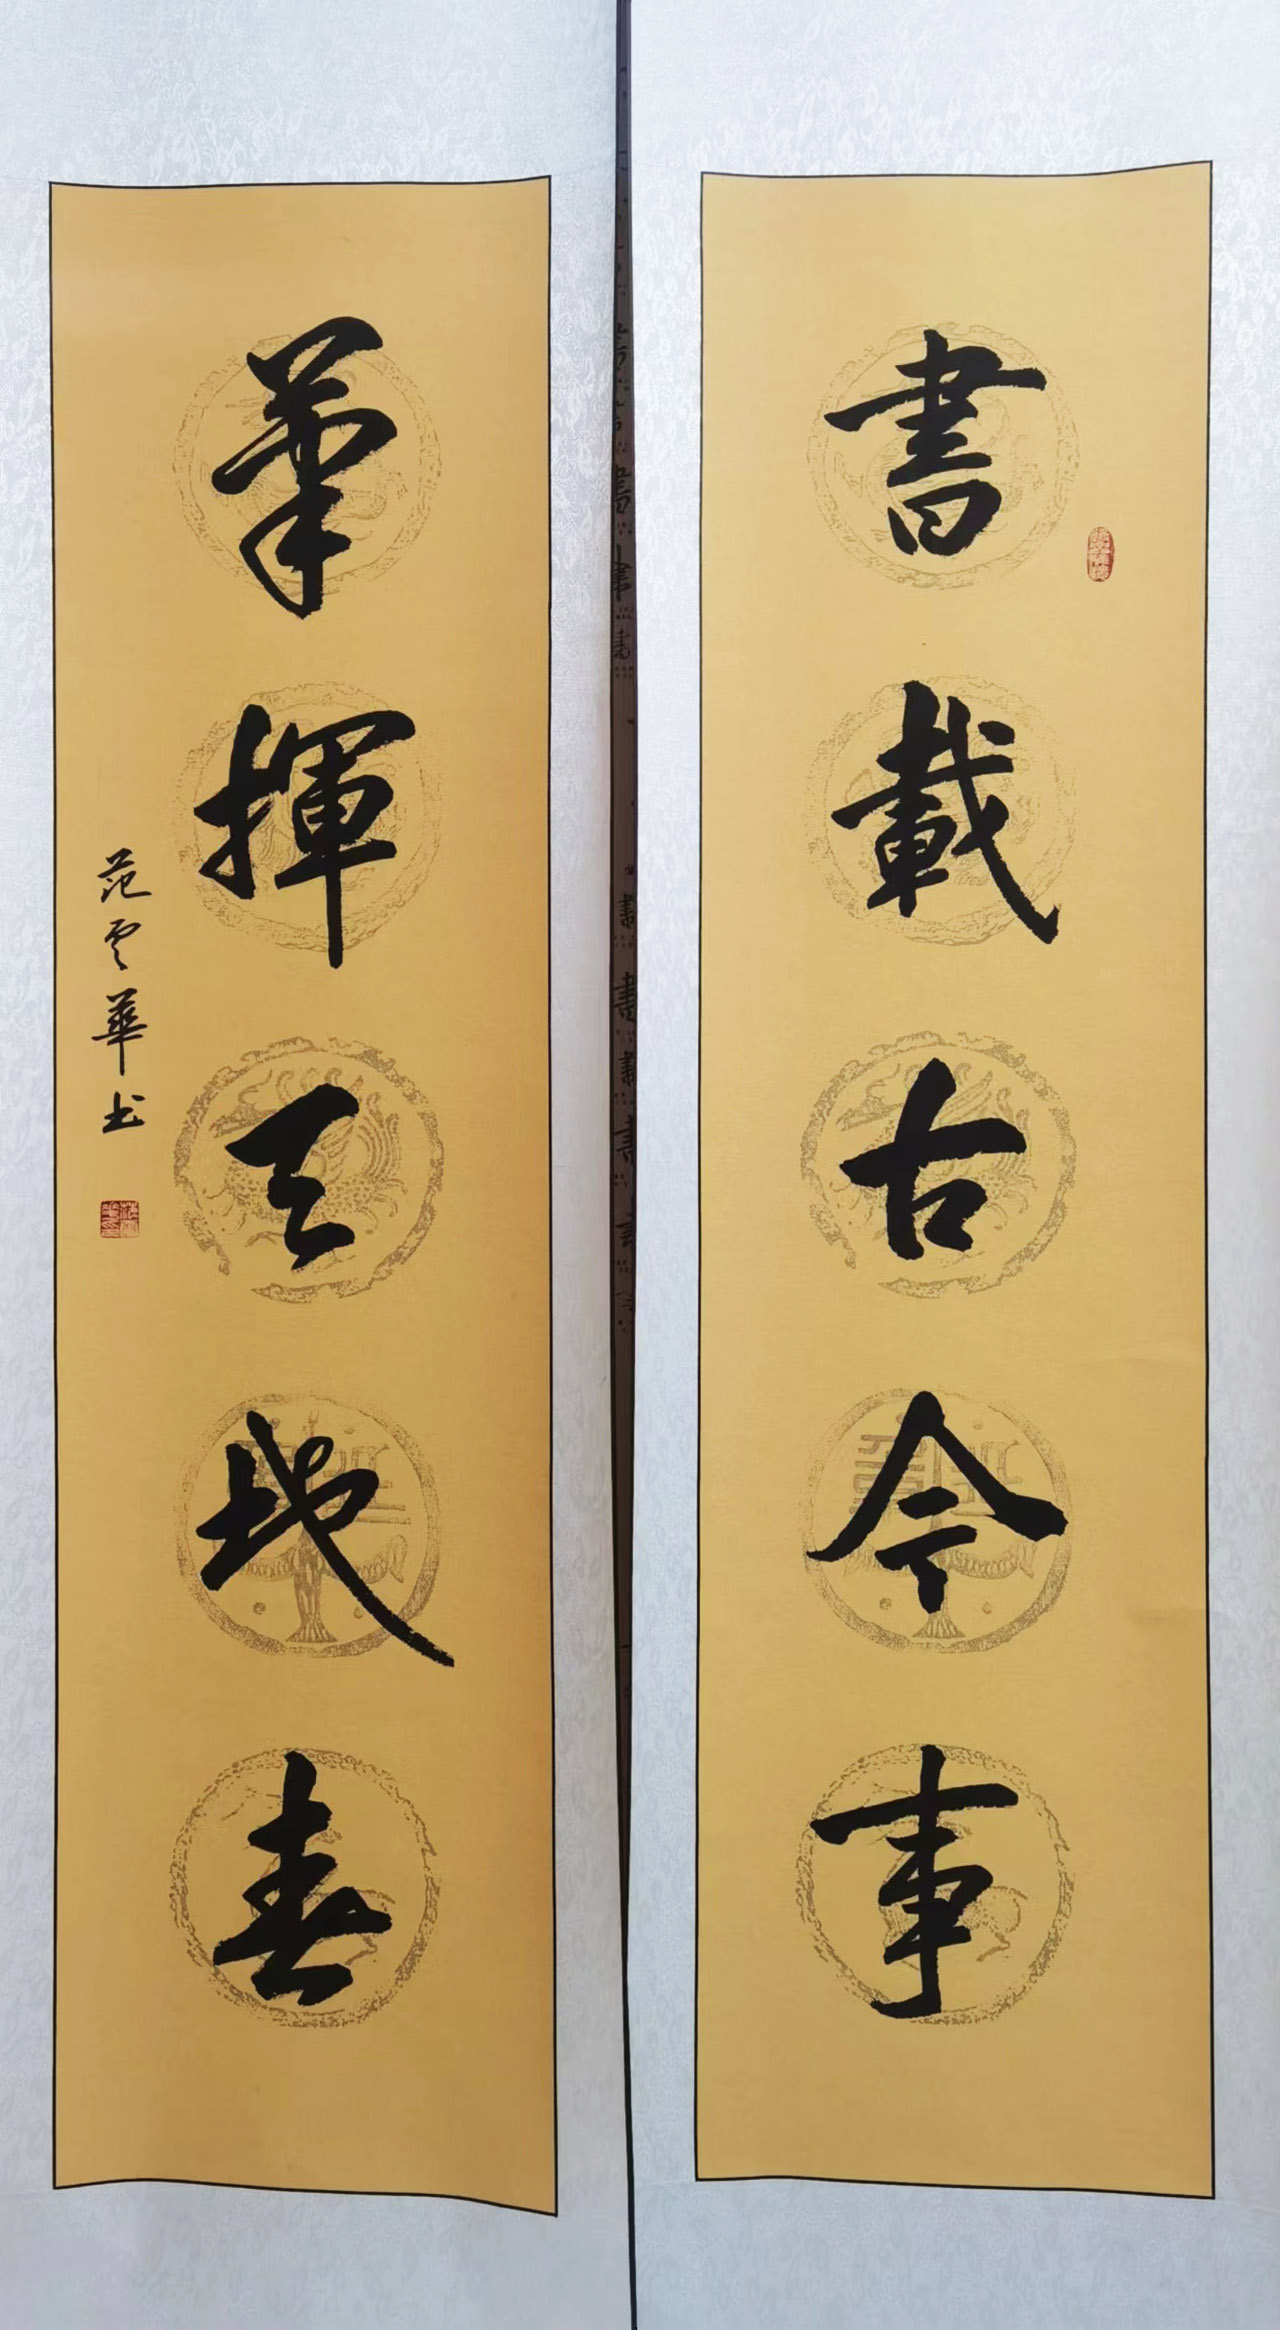 書載古今事
筆揮天地春
范雲華书